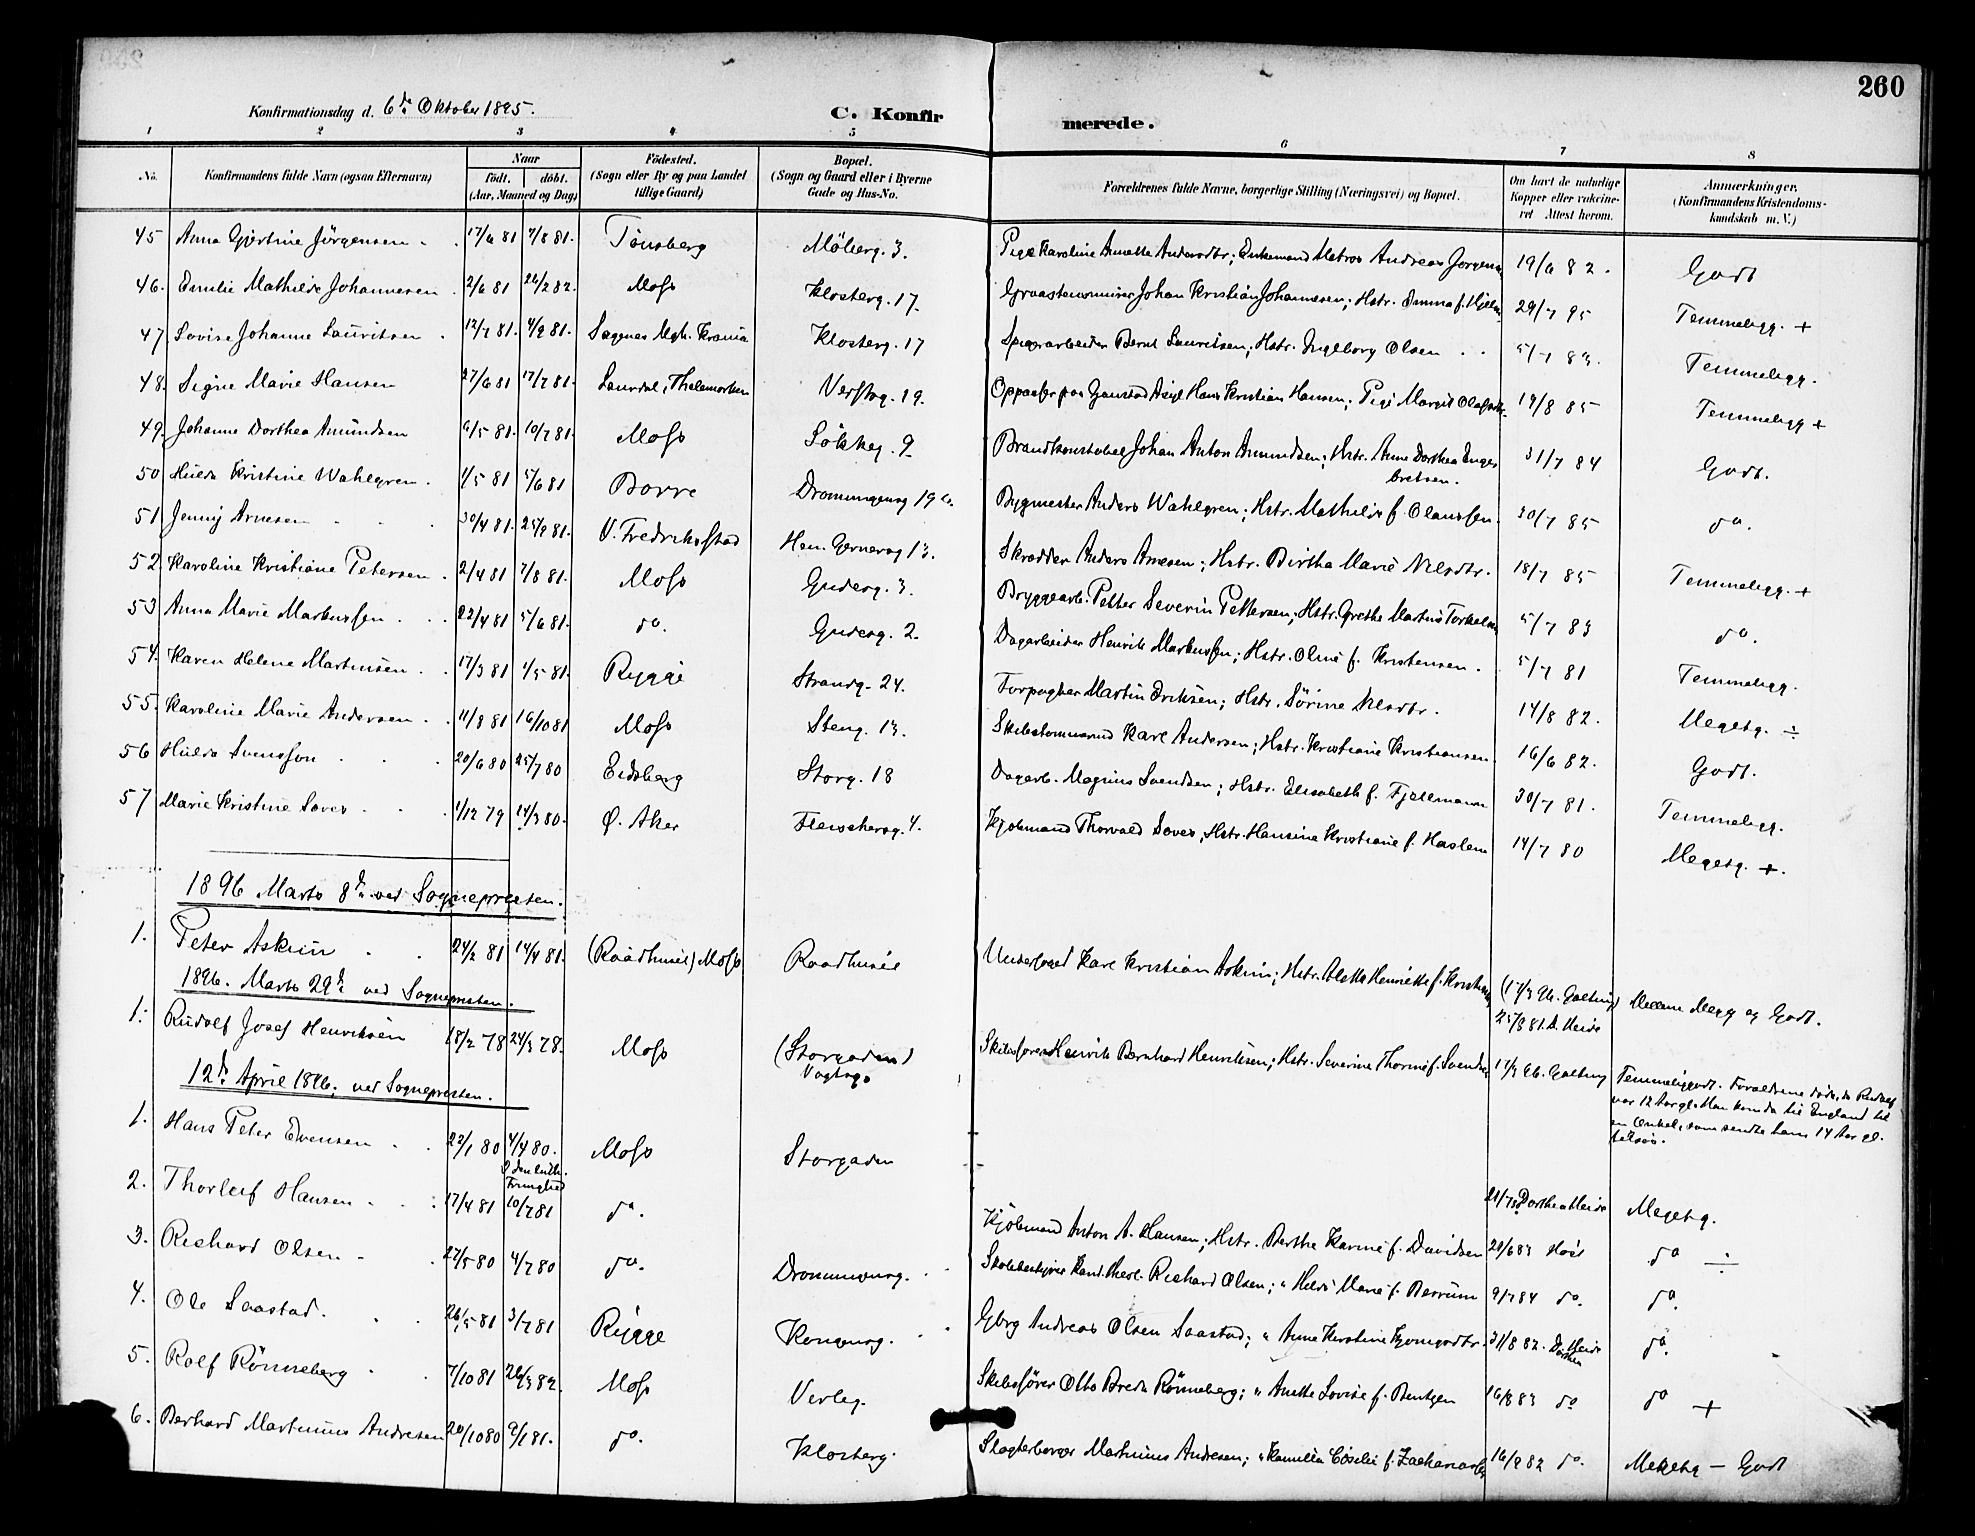 260
Konfirmationsdag d. 6te Oktober 1895.
C. Konfirmerede.
1 2 3 4 5 6 7 8
No. Konfirmandens fulde Navn (ogsaa Efternavn)
Naar födt. döbt. (Aar, Maaned og Dag)
Födested. (Sogn eller By og paa Landet tillige Gaard)
Bopæl. (Sogn og Gaard eller i Byerne Gade og Hus-No.
Forældrenes fulde Navne, borgerlige Stilling (Næringsvei) og Bopæl.
Om havt de naturlige Kopper eller vaccineret Attest herom.
Anmærkninger. (Konfirmandens Kristendomskundskab m. V.)
45 Anna Gjertine Jörgensen 17/6 81 7/8 81. Tönsberg Möllerg. 3. Pige Karoline Annette Andersdtr; Enkemand Matros Andreas Jörgensen 19/6 82. Godt
46. Emilie Mathilde Johannesen 2/6 81 26/2 82. Moss Klosterg. 17. Graastensmurer Johan Kristian Johannesen; Hstr. Emma f. Hjelm 29/7 95 Temmeligg. +
47 Lovise Johanne Lauritsen 12/7 81. 4/9 81. Sagenes Mgh. Krania Klosterg. 17 Spigerarbeider Bernt Lauritsen; Hstr. Ingeborg Olsen 5/7 83. Temmeligg.
48. Signe Marie Hansen 27/6 81 17/7 81. Laurdal, Thelemarken Verftsg. 19. Oppasser paa Gaustad Asyl Hans Kristian Hansen; Pige Margit Olafsdtr. 19/8 85 Temmeligg +
49. Johanne Dorthea Amundsen 6/5 81. 10/7 81. Moss Søkkeg. 9 Brandkonstabel Johan Anton Amundsen; Hstr. Anne Dorthea Engebretsen. 31/7 84 Godt.
50 Hulda Kristine Wahlgren. 1/5 81 5/6 81 Borre Dronningensg 19 Bygmester Anders Wahlgren; Hstr. Mathilde f. Olaussen. 30/7 85 do.
51 Jenny Arnesen 30/4 81. 25/9 81. V. Fredrikstad Hen. Gernersg 13. Skrædder Anders Arnesen; Hstr. Birthe Marie Nilsdtr. 18/7 85 Temmeligg. +
52. Karoline Kristiane Petersen. 2/4 81 7/8 81. Moss Gudesg. 3. Bryggearb. Petter Severin Pettersen; Hstr. Grethe Martine Torkelsen 5/7 83 do.
53 Anna Marie Markussen 22/4 81 5/6 81. do. Gudesg. 2. Dagarbeider Henrik Markussen; Hstr. Oline f. Kristensen. 5/7 81 Temmeligg.
54. Karen Helene Martinsen 17/3 81 1/5 81. Rygge Strandg. 24. Forpagter Martin Eriksen; Hstr. Sørine Nilsdtr. 14/8 82. Megetg. ÷
55. Karoline Marie Andersen 11/8 81 16/10 81 Moss Steng. 13. Skibstømmermd Karl Andersen; Hstr. Kristiane Kristiansen. 16/6 82. Godt.
56 Hulda Svensson 20/6 80 25/7 80 Eidsberg Storg. 18 Dagarb. Magnus Svendsen; Hstr. Elisabeth f. Fjellmann 30/7 81. Temmeligg.
57 Marie Kristine Saves 1/12 79 14/3 80. Ø. Aker Fleischersg. 4. Kjøbmand Thorvald Saves, Hstr. Hansine Kristiane f. Haslem 14/7 80 Megetg. +.
1896 Marts 8de ved Sognepresten.
1. Peter Askim 24/2 81 14/4 81. (Raadhuset) Moss Raadhuset Underfoged Karl Kristian Askim; Hstr. Aletta Henriette f. Kristiansen (17/3 96. Galtung) 25/8 81 D. Heide Mellem Meg. og Godt.
1896. Marts 29de ved Sognepresten.
1. Rudolf Josef Henriksen 18/2 78 24/3 78. Moss (Storgaden) Vogtsg. Skibsfører Henrik Bernhard Henriksen; Hstr. Severine Thorine f. Svendsen 17/3 96. Galtung Temmeliggodt. Forældrene døde, da Rudolf var 12 Aar gl. Han kom da til England til en Onkel, som sendte ham 14 Aar gl. tilsøs.
12te April 1896, ved Sognepresten.
1. Hans Peter Evensen 22/1 80 4/4 80. i den luth. Frimenighed Moss Storgaden 21/7 Dorthea Heide Megetg.
2. Thorleif Hansen 17/4 81 10/7 81 do. Kjøbmand Anton A. Hansen; Hstr. Berthe Karine f. Davidsen 20/6 83 Høst do ÷
3. Richard Olsen 27/5 80 4/7 80 do. Dronningensg. Skolebestyrer Kand. theol. Richard Olsen; " Hilda Marie f. Berrum 9/7 84 do. do.
4. Ole Saastad. 26/5 81 3/7 81 Rygge Kongensg. Gbrg Andreas Olsen Saastad; " Anne Kirstine Gjermundtr. 31/8 82. Dorthea Heide do.
5. Rolf Rönneberg 7/10 81 26/3 82. Moss Verleg. Skibsfører Otto Breda Rønneberg; " Anette Lovise f. Bentzen 16/8 83 do do +
6. Berhard Martinius Andresen 20/10 80 9/1 81. do. Klosterg. Slagterborger Martinius Andresen; " Kamilla Cesilie f. Zachariassen 16/9 82 do. Megetg – Godt